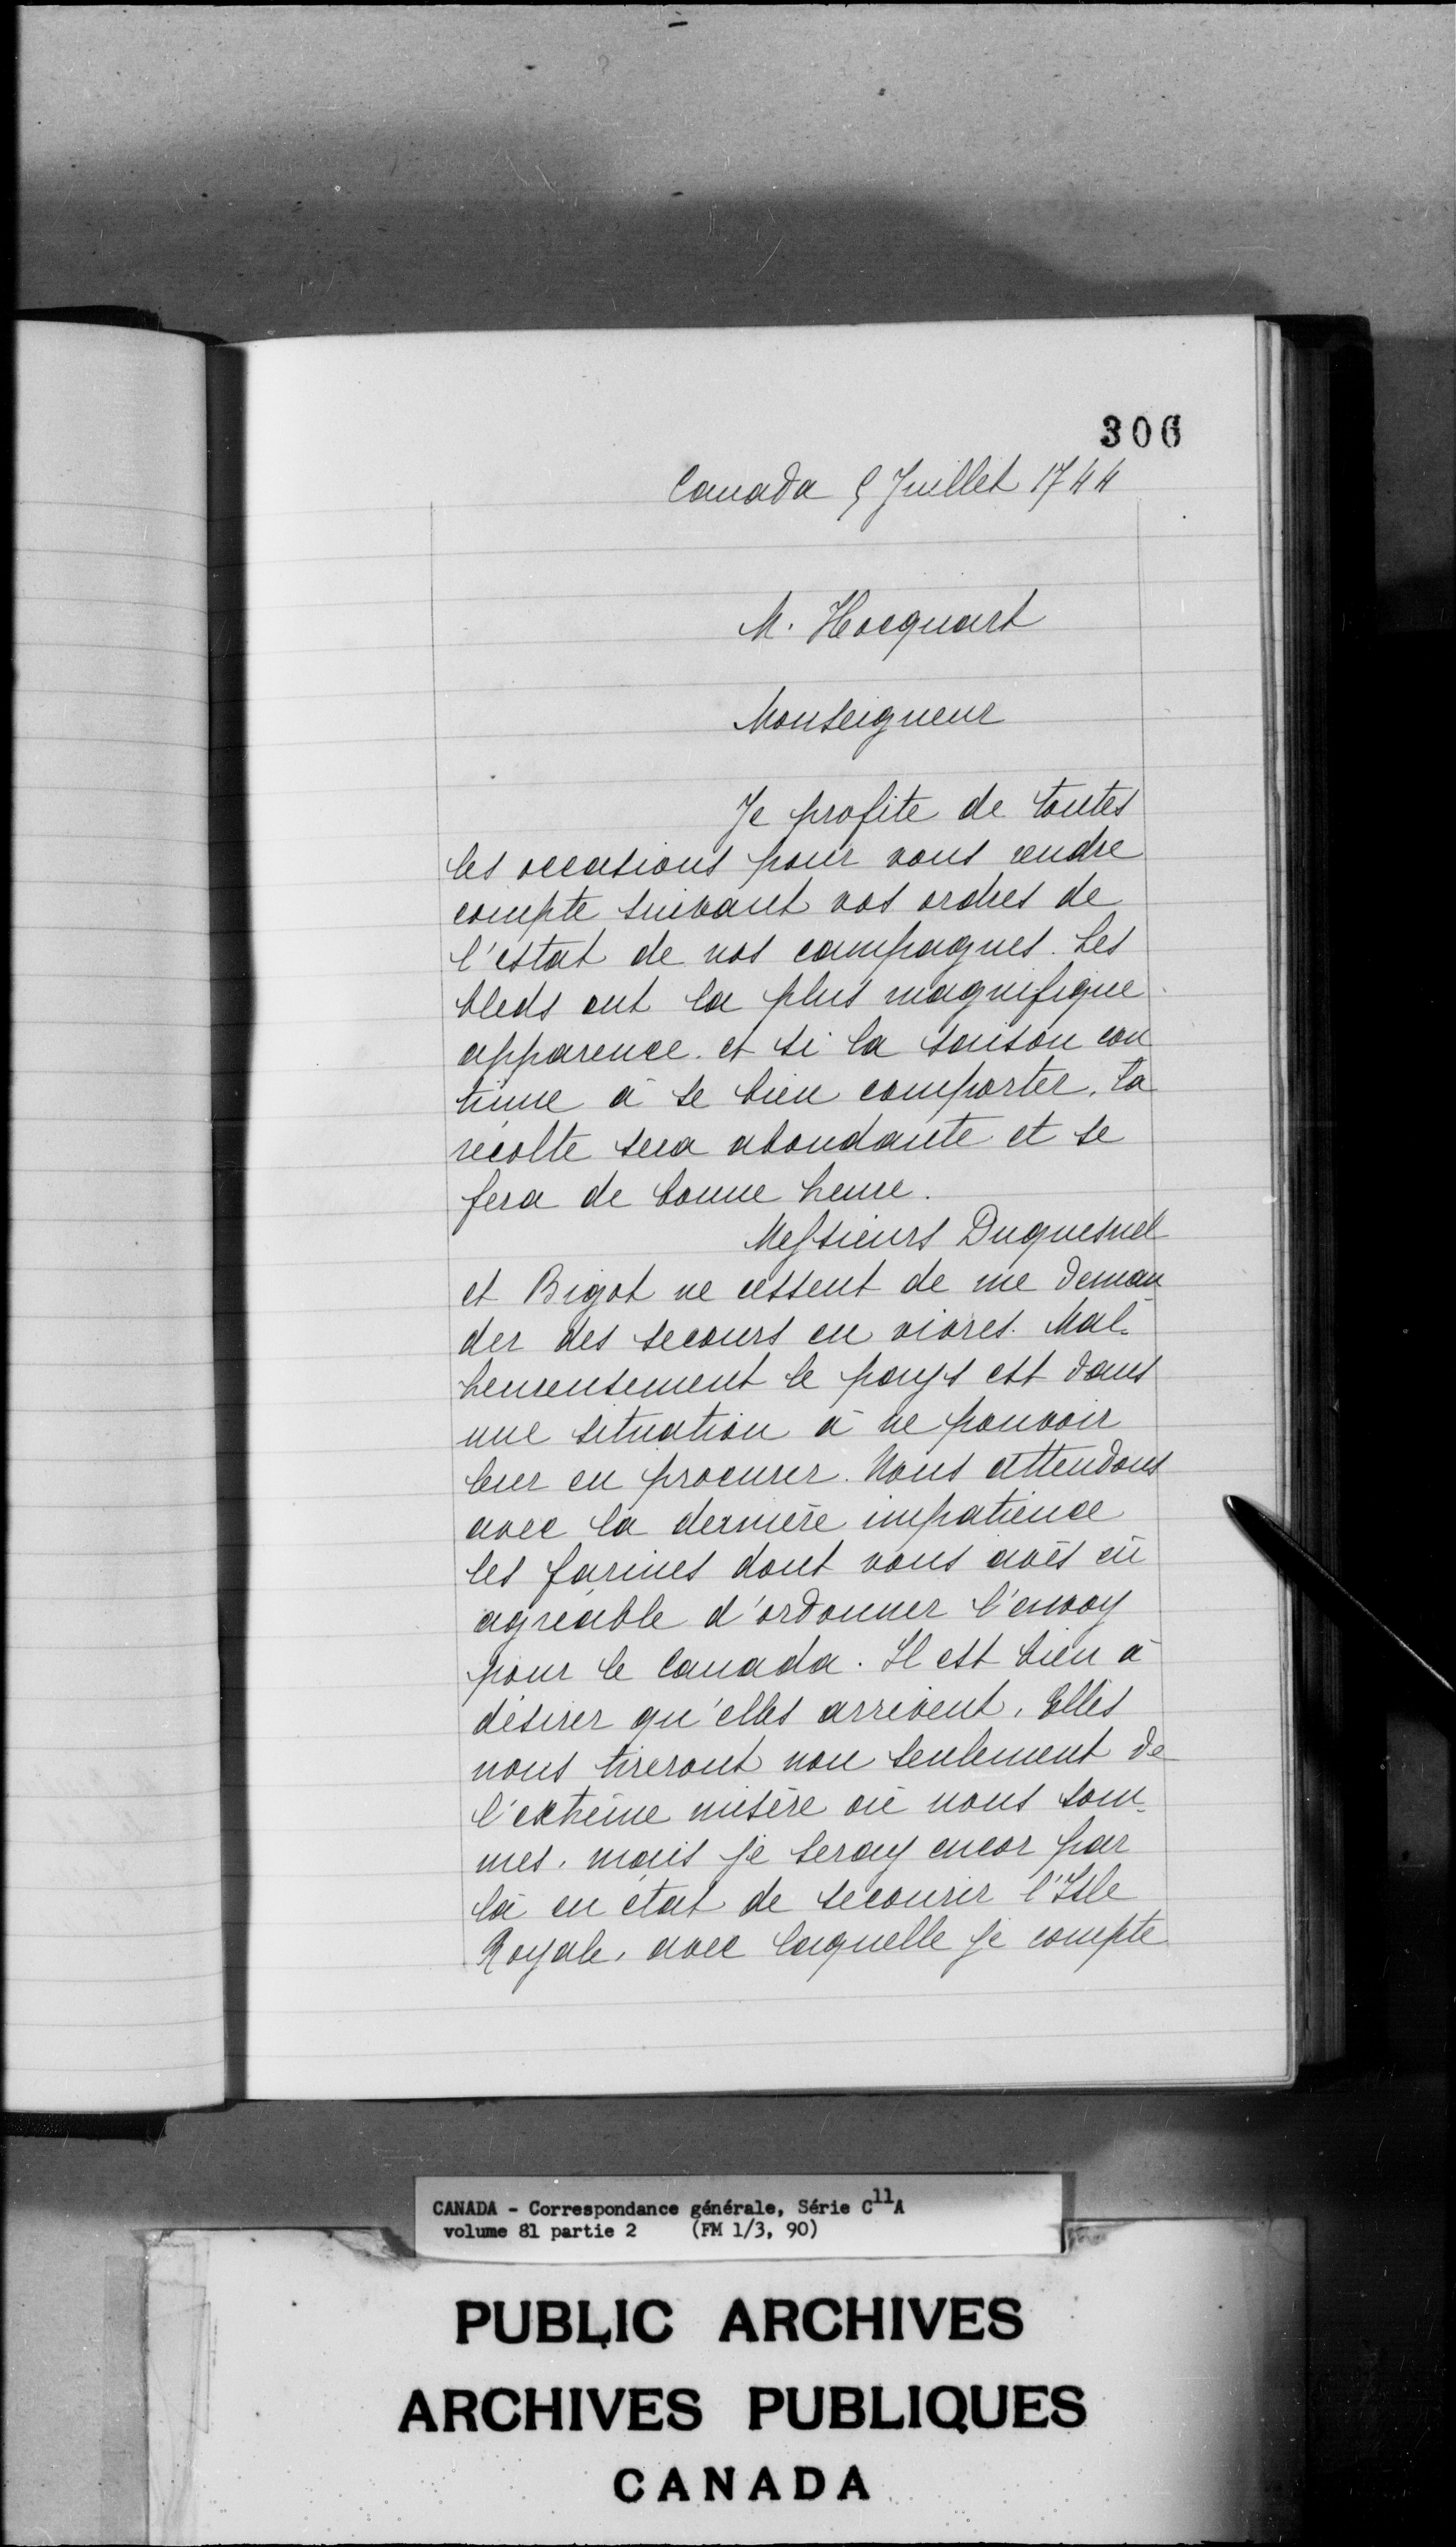 306
Canada 5 Juillet 1744
M. Hocquart
Monseigneur
Je profite de toutes
les occasions pour vous rendre
compte suivant vos ordres de
l'estat de nos campagnes. Les
bleds ont la plus magnifique
apparence. et si la saison con
tinue à se bien comporter, la
récolte sera abondante et se
fera de bonne heure.
Messieurs Duquesnel
et Bigot ne cessent de me deman
der des secours en vivres. Mal-
heureusement le pays est dans
une situation à ne pouvoir
leur en procurer. Nous attendons
avec la dernière impatience
les farines dont vous avés eû
agréable d'ordonner l'envoy
pour le Canada. Il est bien à
désirer qu'elles arrivent. Elles
nous tireront non seulement de
l'extrême misère où nous som-
mes, mais je seray encor par
là en état de secourir l'Isle
Royale, avec laquelle je compte
CANADA - Correspondance générale, Série C11A
volume 81 partie 2 (FM 1/3, 90)
PUBLIC ARCHIVES
ARCHIVES PUBLIQUES
CANADA